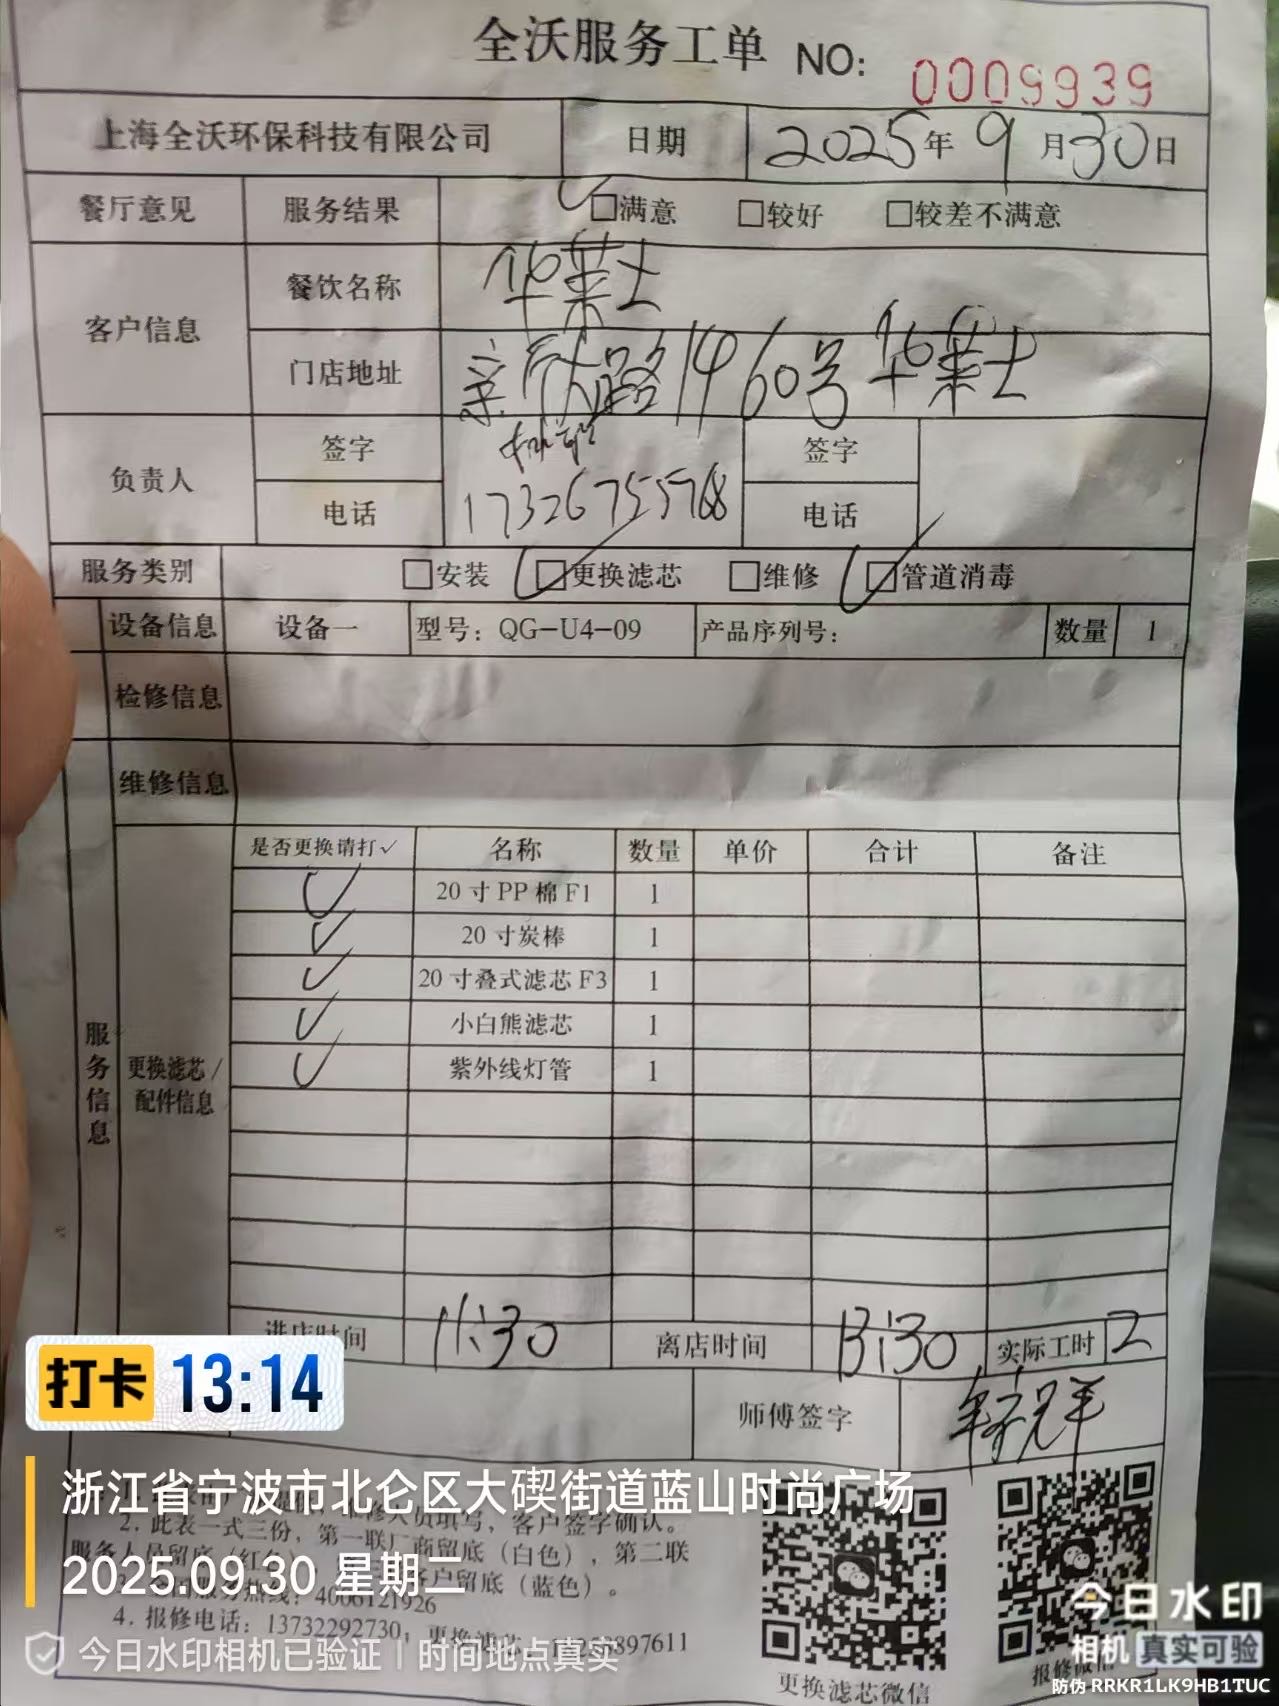 全沃服务工单 NO: 0009939
上海全沃环保科技有限公司 日期 2025年 9月30日
餐厅意见 服务结果 ☑满意 □较好 □较差不满意
客户信息 餐饮名称 华莱士
门店地址 路1460号华莱士
负责人 签字 签字
电话 电话
服务类别 □安装 ☑更换滤芯 □维修 ☑管道消毒
设备信息 设备一 型号：QG-U4-09 产品序列号： 数量 1
检修信息
维修信息
服务信息
更换滤芯/配件信息
是否更换请打✓ 名称 数量 单价 合计 备注
✓ 20寸PP棉F1 1
✓ 20寸炭棒 1
✓ 20寸叠式滤芯F3 1
✓ 小白熊滤芯 1
✓ 紫外线灯管 1
进店时间 11:30 离店时间 13:30 实际工时 2
师傅签字
打卡 13:14
浙江省宁波市北仑区大碶街道蓝山时尚广场
2.此表一式三份，第一联厂商留底（白色），第二联
客户留底（蓝色）。
2025.09.30 星期二
服务热线：4006121926
4.报修电话：13732292730，更换滤芯
今日水印相机已验证 时间地点真实
更换滤芯微信 报修微信
今日水印
相机 真实可验
防伪 RRKR1LK9HB1TUC